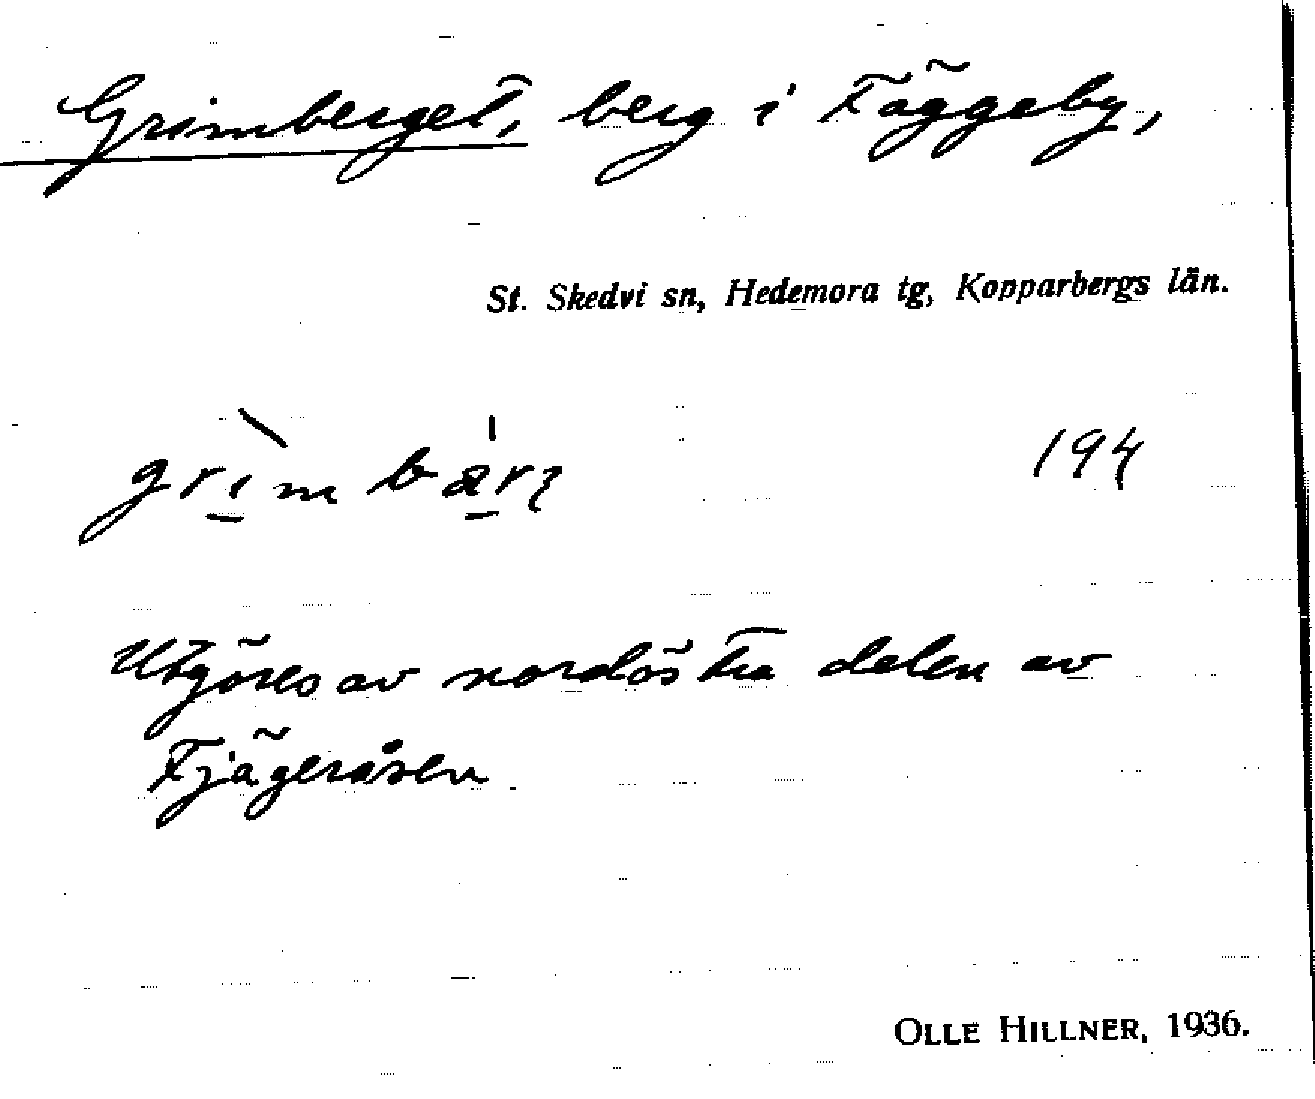 Grimberget, berg i Fäggeby,
St. Skedvi sn, Hedemora tg, Kopparbergs län.
194
Utgöres av nordöstra delen av
Fjägeråsen
OLLE HILLNER, 1936.